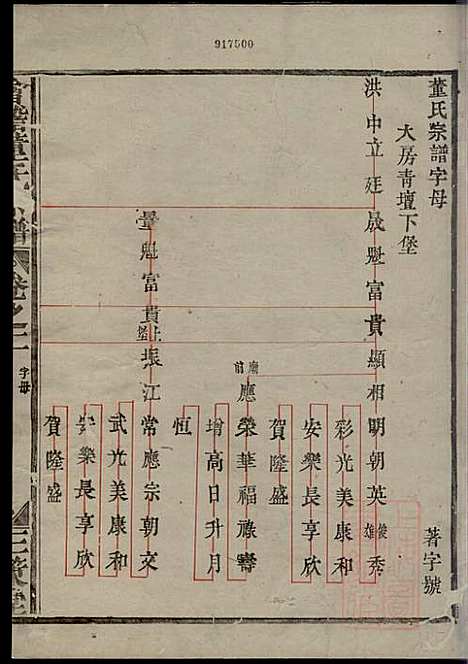 917500
董氏宗譜字母
大房靑壇下堡
著字號
洪中立廷晟魁富貴顯相明朝英俊雄秀
彩光美康和
安樂長享欣
賀隆盛
廟前應榮華福祿壽
增高日升月
恒
魁富貴
振江常應宗朝交
武光美康和
安樂長享欣
賀隆盛
卷之二
字母